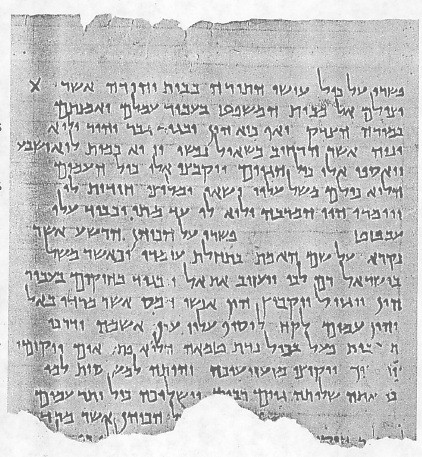 פשרו על כול עושי התורה בבית יהודה אשר X
יצילם אל מבית המשפט בעבור עמלם ואמנתם
במורה הצדק ואף כיא הון יבגוד גבר יהיר ולוא
ינוה אשר הרחיב כשאול נפשו והוא כמות לוא ישבע
ויאספו אלו כול הגוים ויקבצו אלו כול העמים
הלוא כולם משל עליו ישאו ומליצי חידות לו
ויומרו הוי המרבה ולוא לו עד מתי יכביד עלו
עבטט פשרו על הכוהן הרשע אשר
נקרא על שם האמת בתחלת עומדו וכאשר משל
בישראל רם לבו ויעזוב את אל ויבגוד בחוקים בעבור
הון ויגזול ויקבוץ הון אנשי חמס אשר מרדו באל
והון עמים לקח לוסיף עליו עון אשמה ודרכי
פעל בכול נדת טמאה הלוא ויקומו
ויקיצו מזעזיעיכה והיתה למשיסות למו
כי אתה שלותה גוים רבים וישלוכה כול יתר עמים
הכוהן אשר